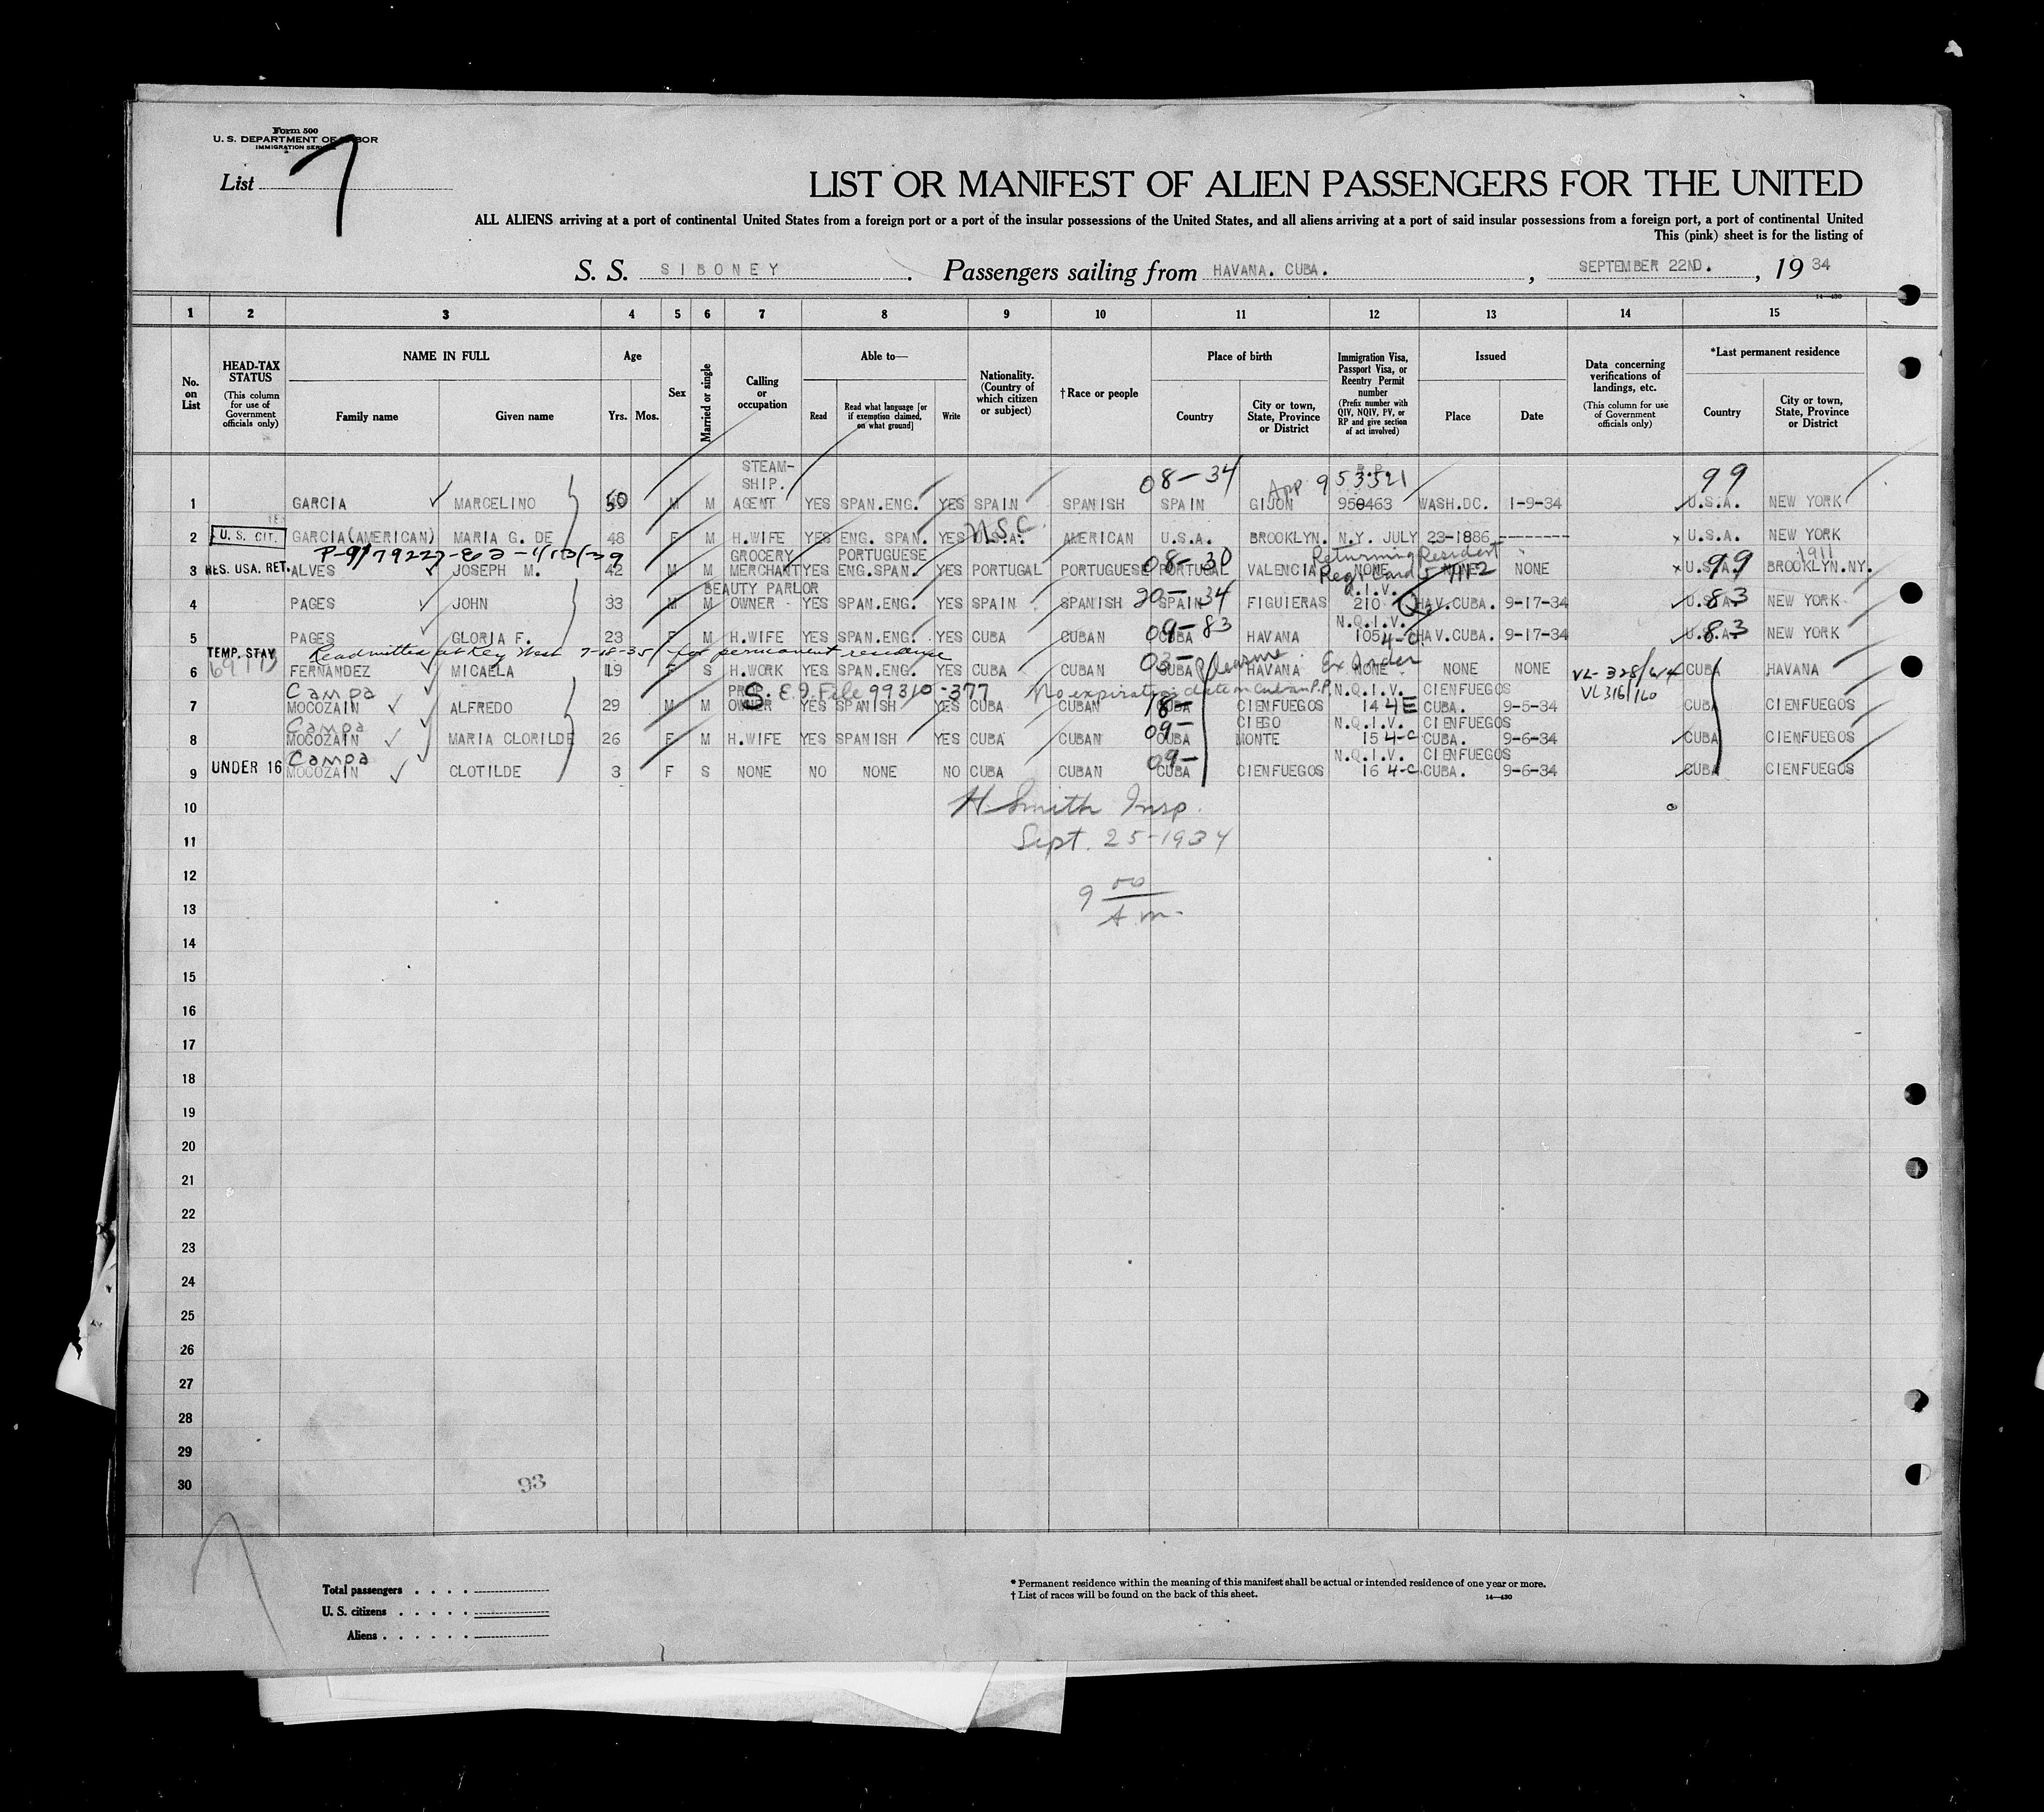 Form 500
U. S. DEPARTMENT OF LABOR
IMMIGRATION SERVICE
List 7
LIST OR MANIFEST OF ALIEN PASSENGERS FOR THE UNITED
ALL ALIENS arriving at a port of continental United States from a foreign port or a port of the insular possessions of the United States, and all aliens arriving at a port of said insular possessions from a foreign port, a port of continental United
This (pink) sheet is for the listing of
S. S. SIBONEY Passengers sailing from HAVANA. CUBA. , SEPTEMBER 22ND. , 19 34
14—430
1 2 3 4 5 6 7 8 9 10 11 12 13 14 15
No. on List
HEAD-TAX STATUS (This column for use of Government officials only)
NAME IN FULL Family name Given name
Age Yrs. Mos.
Sex
Married or single
Calling or occupation
Able to— Read Read what language [or if exemption claimed, on what ground] Write
Nationality. (Country of which citizen or subject)
† Race or people
Place of birth Country City or town, State, Province or District
Immigration Visa, Passport Visa, or Reentry Permit number (Prefix number with QIV, NQIV, PV, or RP and give section of act involved)
Issued Place Date
Data concerning verifications of landings, etc. (This column for use of Government officials only)
*Last permanent residence Country City or town, State, Province or District
STEAM-SHIP. 08-34 App 953321 99
1 GARCIA MARCELINO 50 M M AGENT YES SPAN.ENG. YES SPAIN SPANISH SPAIN GIJON 950463 WASH.DC. 1-9-34 U.S.A. NEW YORK
2 U. S. CIT. GARCIA(AMERICAN) MARIA G. DE 48 F M H.WIFE YES ENG. SPAN. YES U.S.A. U.S.C. AMERICAN U.S.A. BROOKLYN. N.Y. JULY 23-1886 -------- U.S.A. NEW YORK
GROCERY PORTUGUESE 08-30 Returning Resident 99 1911
3 RES. USA. RET. ALVES JOSEPH M. 42 M M MERCHANT YES ENG.SPAN. YES PORTUGAL PORTUGUESE PORTUGAL VALENCIA NONE NONE NONE U.S.A. BROOKLYN.NY.
BEAUTY PARLOR 20-34 Q.I.V. 83
4 PAGES JOHN 33 M M OWNER YES SPAN.ENG. YES SPAIN SPANISH SPAIN FIGUIERAS 210 HAV.CUBA. 9-17-34 U.S.A. NEW YORK
09-83 N.Q.I.V. 83
5 PAGES GLORIA F. 23 F M H.WIFE YES SPAN.ENG. YES CUBA CUBAN CUBA HAVANA 105 4-C HAV.CUBA. 9-17-34 U.S.A. NEW YORK
TEMP. STAY Readmitted at Key West 7-18-35 for permanent residence 03- pleasure Ex Order
6 FERNANDEZ MICAELA 19 F S H.WORK YES SPAN.ENG. YES CUBA CUBAN CUBA HAVANA NONE NONE NONE VL-328/64 CUBA HAVANA
Campa PROP. S.E.I. File 99310-377 No expiration date on Cuban P.P. N.Q.I.V. CIENFUEGOS VL 316/160
7 MOCOZAIN ALFREDO 29 M M OWNER YES SPANISH YES CUBA CUBAN 18- CUBA CIENFUEGOS 14 4E CUBA. 9-5-34 CUBA CIENFUEGOS
Campa CIEGO N.Q.I.V. CIENFUEGOS
8 MOCOZAIN MARIA CLORILDE 26 F M H.WIFE YES SPANISH YES CUBA CUBAN 09- CUBA MONTE 15 4-C CUBA. 9-6-34 CUBA CIENFUEGOS
Campa 09- N.Q.I.V. CIENFUEGOS
9 UNDER 16 MOCOZAIN CLOTILDE 3 F S NONE NO NONE NO CUBA CUBAN CUBA CIENFUEGOS 16 4-C CUBA. 9-6-34 CUBA CIENFUEGOS
10 H Smith Insp.
11 Sept. 25-1934
12
13 9 00 A.m.
14
15
16
17
18
19
20
21
22
23
24
25
26
27
28
29
30
93
Total passengers
U. S. citizens
Aliens
* Permanent residence within the meaning of this manifest shall be actual or intended residence of one year or more.
† List of races will be found on the back of this sheet.
14—430